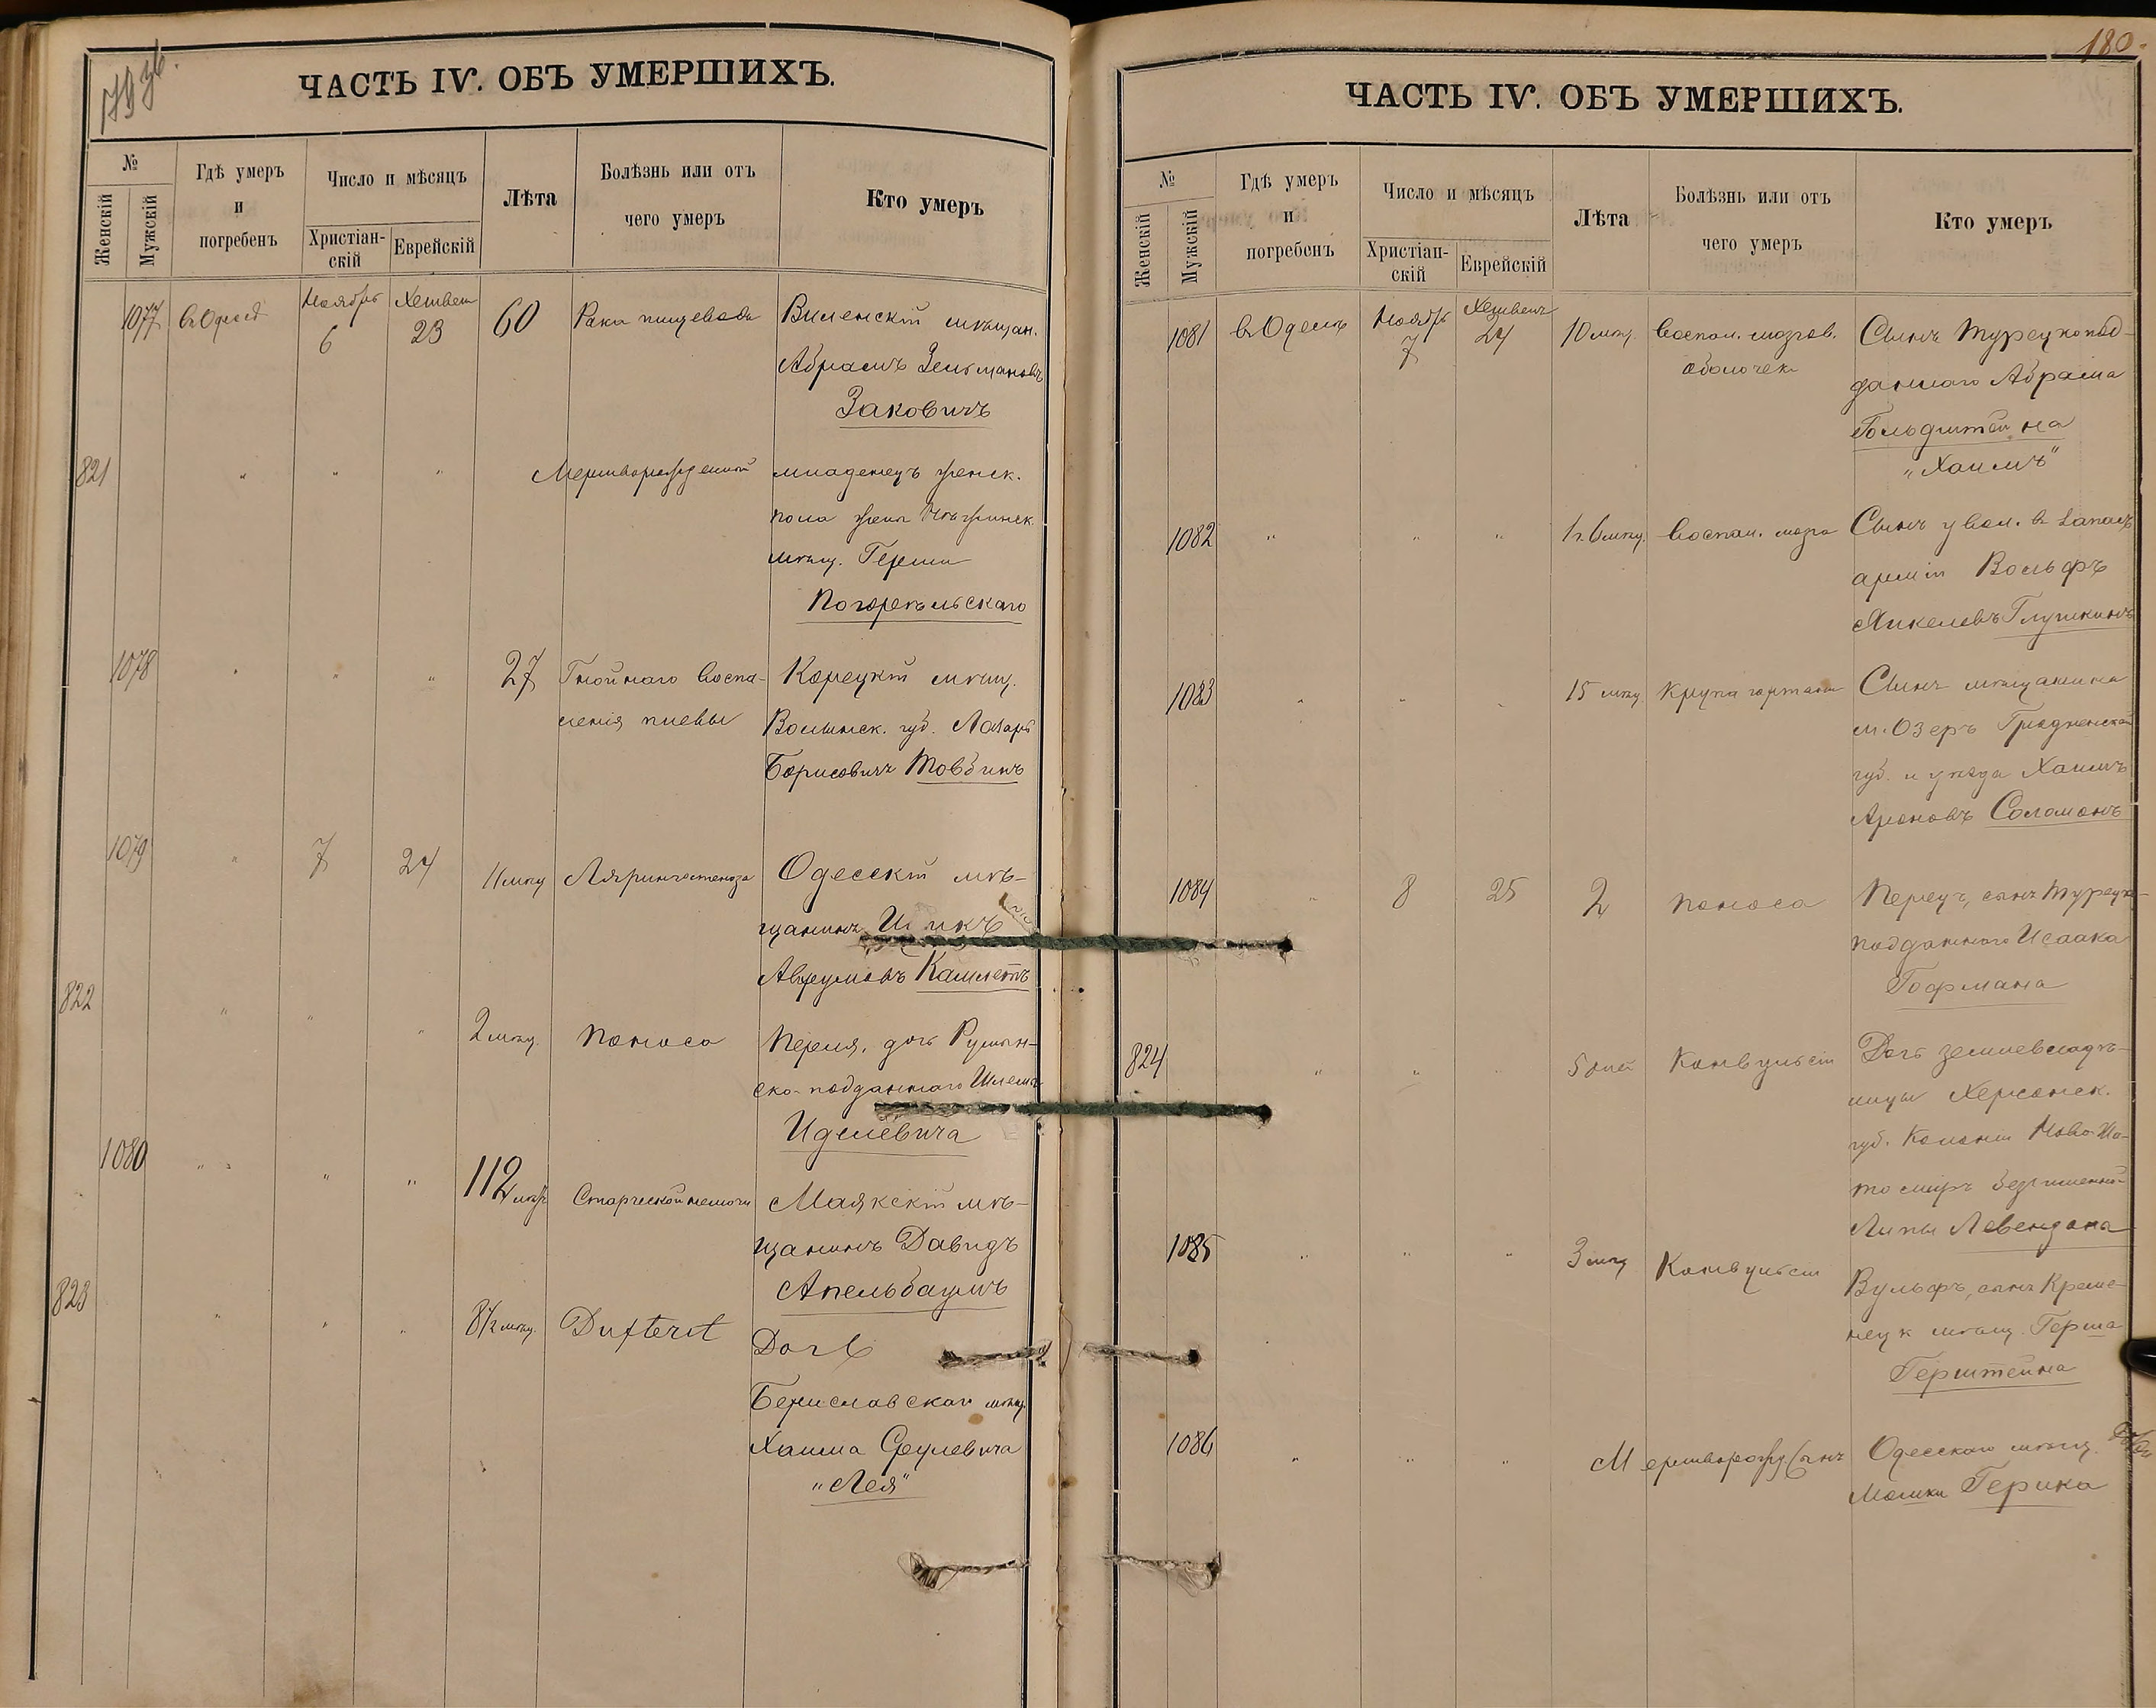 179 об.
ЧАСТЬ IV. ОБЪ УМЕРШИХЪ.
№
Женскій
Мужскій
Гдѣ умеръ
и
погребенъ
Число и мѣсяцъ
Христіан-
скій
Еврейскій
Лѣта
Болѣзнь или отъ
чего умеръ
Кто умеръ
1077 въ Одессѣ Ноябрь 6 Хешвен 23 60 Рака пищевода Виленскій мѣщан.
Абрамъ Зельмановъ
Заковичъ
821 " " " Мертворожденный младенецъ женск.
пола жены
мѣщ. Герша
Погорѣльскаго
1078 " " " 27 Гнойнаго воспа- Корецкій мѣщ.
ленія плевы Волынск. губ. Лазарь
Борисовичъ Товбинъ
1079 " 7 24 11 мѣсц Лярингостеноза Одесскій мѣ-
щанинъ
Аврумовъ
822 " " " 2 мѣсц. Поноса Перля, дочь Румын-
ско-подданнаго Шлемы
Иделевича
1080 " " " 112 лѣтъ Старческой немочи Маякскій мѣ-
щанинъ Давидъ
Апельбаумъ
823 " " " 8½ мѣсц. Дифтерит Дочь
Бериславскаго мѣщ.
Хаима Срулевича
"Лея"
180.
ЧАСТЬ IV. ОБЪ УМЕРШИХЪ.
№
Женскій
Мужскій
Гдѣ умеръ
и
погребенъ
Число и мѣсяцъ
Христіан-
скій
Еврейскій
Лѣта
Болѣзнь или отъ
чего умеръ
Кто умеръ
1081 въ Одессѣ Ноябрь 7 Хешвен 24 10 мѣсц. Воспал. мозгов. Сынъ Турецкопод-
оболочекъ даннаго Абрама
Гольдштейна
"Хаимъ"
1082 " " " 1 г. 6 мѣсц. Воспал. мозга Сынъ увол. въ запасъ
арміи Вольфъ
Янкелевъ Глушкинъ
1083 " " " 15 мѣсц. Крупа гортани Сынъ мѣщанина
м. Озеръ Гродненской
губ. и уѣзда Хаимъ
Ароновъ Соломонъ
1084 " 8 25 2 Поноса Перецъ, сынъ Турецко-
подданнаго Исаака
Гофмана
824 " " " 5 дней Конвульсіи Дочь землевладѣ-
лицы Херсонск.
губ. Колоніи Ново-Жи-
томиръ безъименная
Липы
1085 " " " 3 мѣсц Конвульсіи Вульфъ, сынъ Креме-
нецк мѣщ. Герша
Герштейна
1086 " " " Мертворожд. сынъ Одесскаго мѣщ.
Мошки Герика